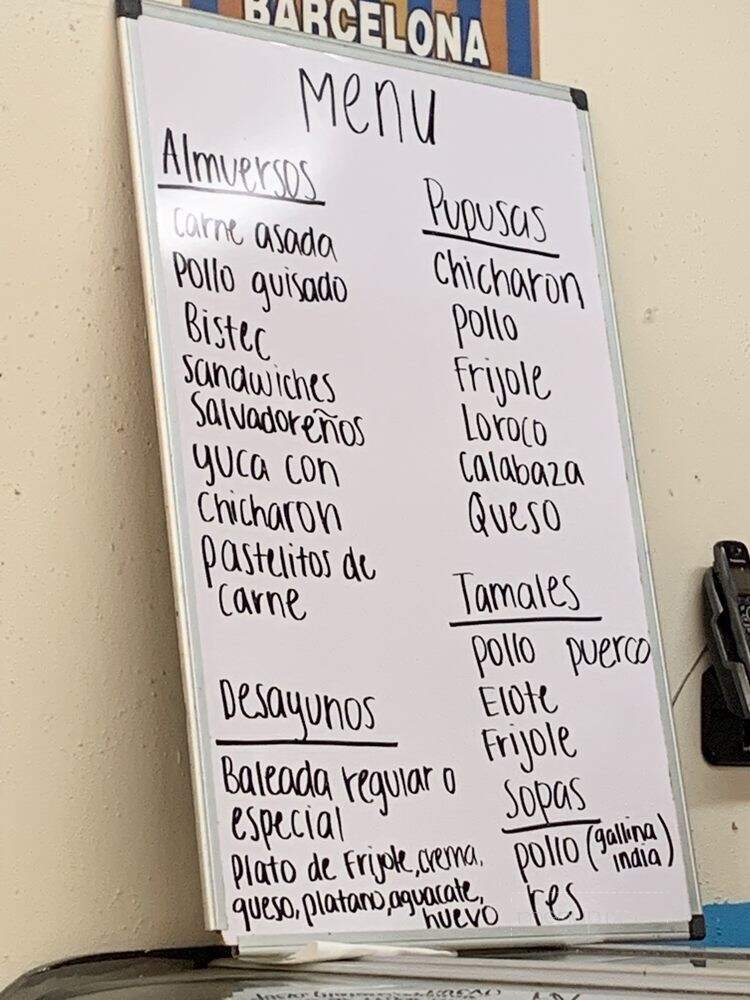 BARCELONA
Menu
Almuersos
Carne asada
Pollo guisado
Bistec
Sandwiches
Salvadoreños
yuca con
Chicharon
pastelitos de
carne
Desayunos
Baleada regular o
especial
Plato de Frijole, crema,
queso, platano, aguacate,
huevo
Pupusas
Chicharon
pollo
Frijole
Loroco
Calabaza
Queso
Tamales
pollo puerco
Elote
Frijole
Sopas
pollo (gallina
india)
res